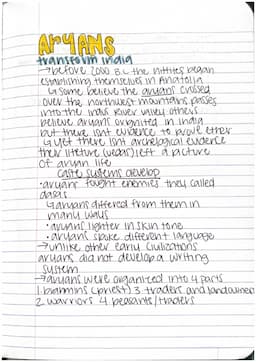 ARYANS
transform india
→before 2000 B.C the hittites began
establishing themselves in Anatolia
↳some believe the aryans crossed
over the northwest mountains passes
into the indus River valley others
believe aryans orginited in india
but there isnt evidence to prove ether
↳yet there isnt archelogical evidence
their liteture (vedas) left a picture
of aryan life
caste systems develop
•aryans fought enemies they called
dasas
↳aryans differed from them in
many ways
•aryans lighter in skin tone
•aryans spoke different language
→unlike other early civilizations
aryans did not develop a writing
system
→aryans were organized into 4 parts
1. bramins (priest) 3. traders and landowners
2. warriors 4. peasants/traders